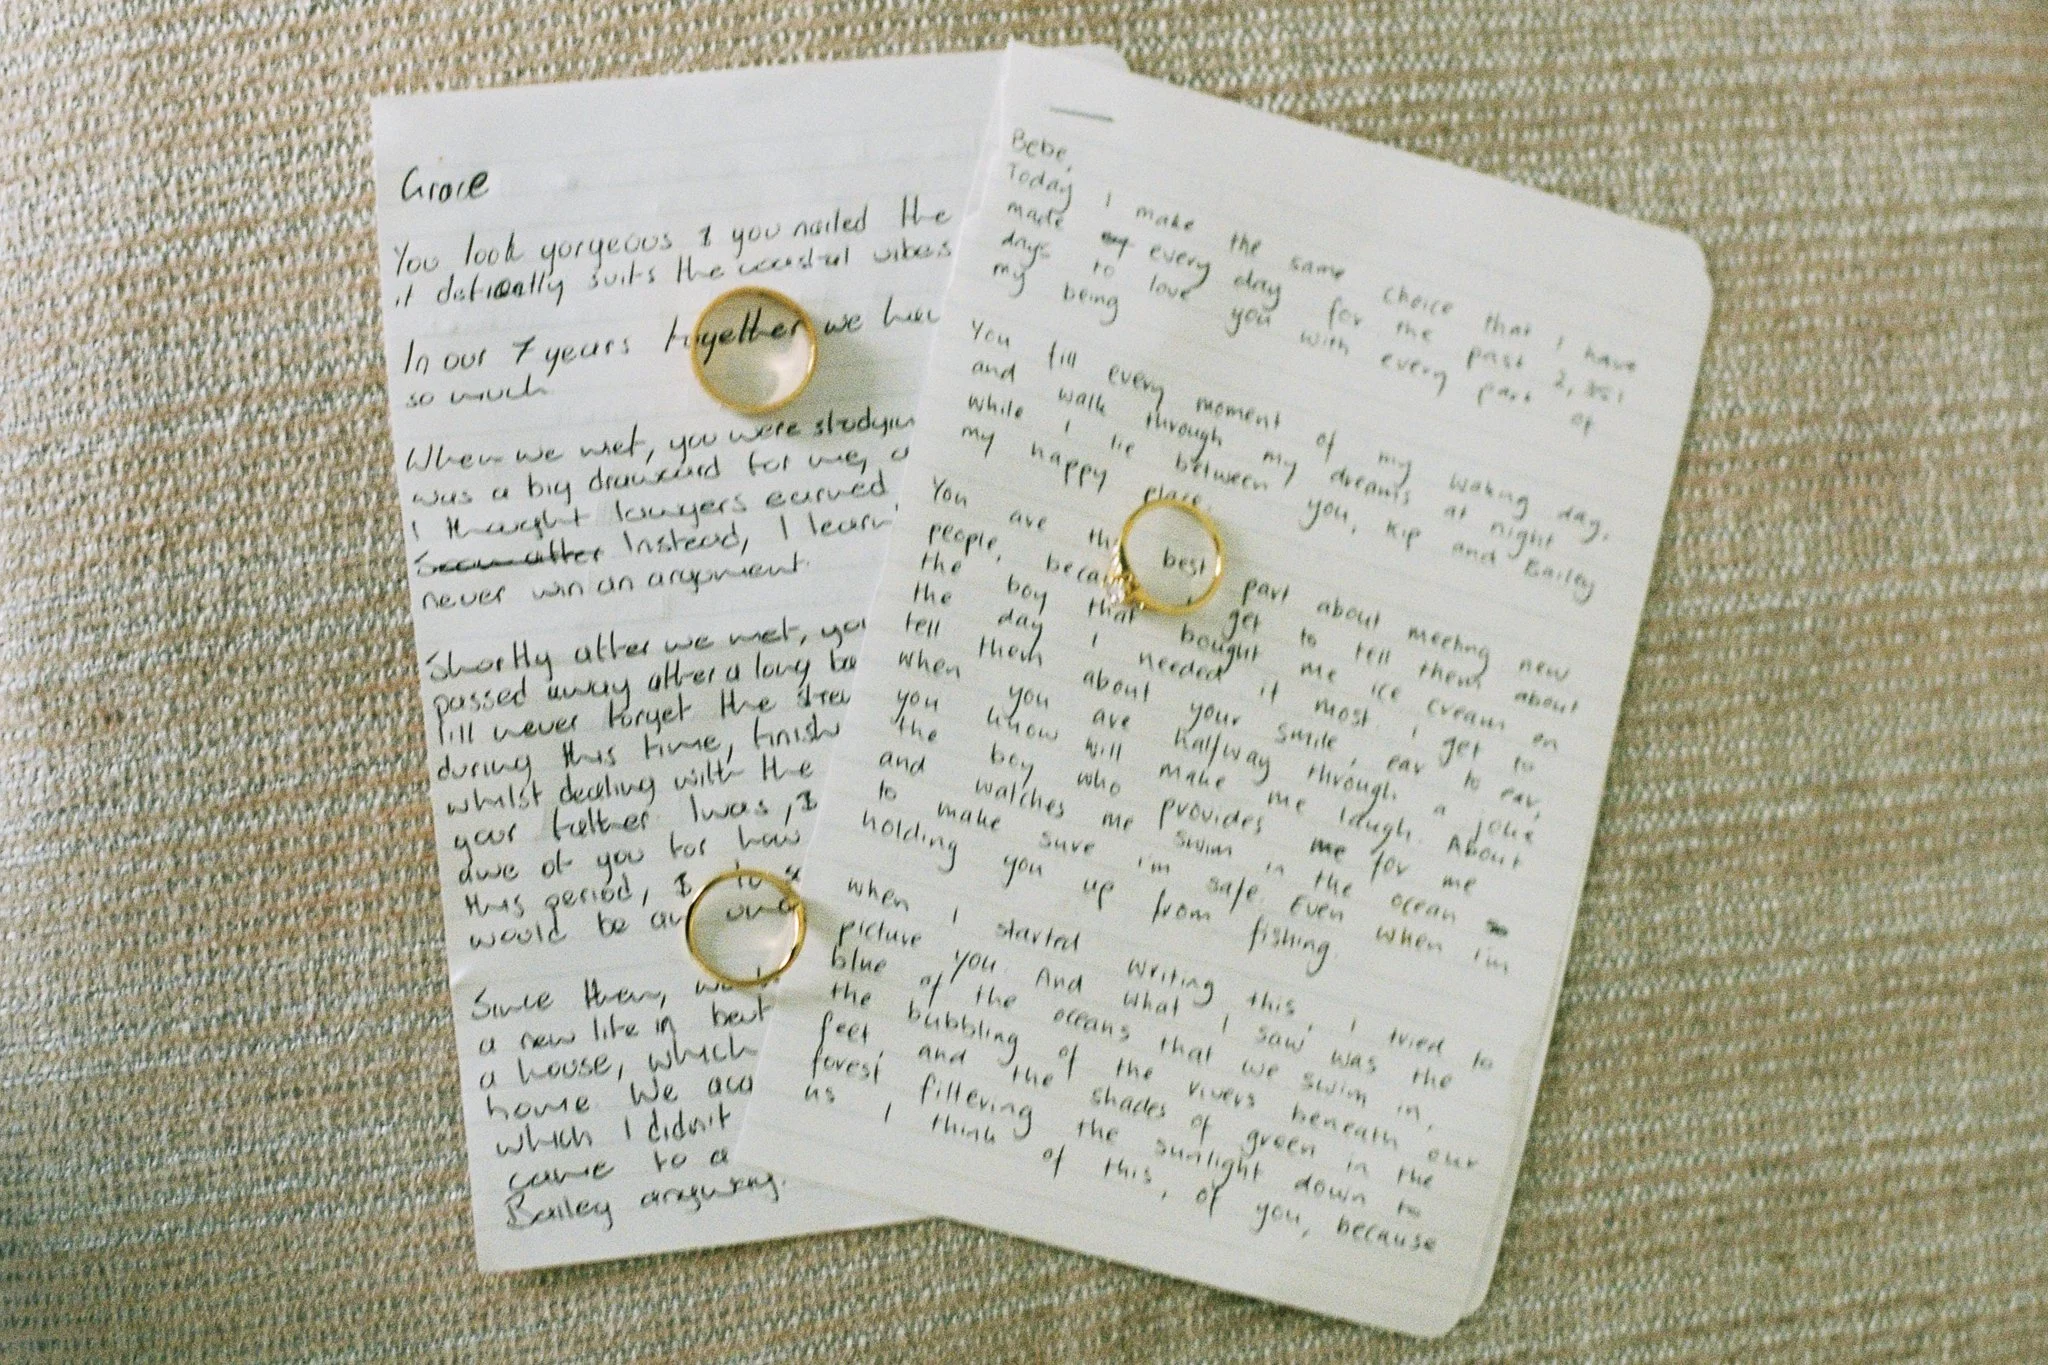 Grace
You look gorgeous & you nailed the
it definatlly suits the coastal vibes
In our 7 years together we hav
so much
When we met, you were studyin
was a big drawcard for me,
I thought lawyers earned
Soon after Instead, I learn
never win an argument.
Shortly after we met, you
passed away after a long ba
I'll never forget the stren
during this time, finish
whilst dealing with the
your father. I was, &
awe of you for how
this period, &
would be an
Since then, we
a new life in beaut
a house, which
home. We
which I didn't
came to a
Bailey anyway.
Bebe,
Today I make the same choice that I have
made every day for the past 2,351
days to love you with every part of
my being
You fill every moment of my waking day,
and walk through my dreams at night
while I lie between you, Kip and Bailey
my happy place.
You are the best part about meeting new
people, because I get to tell them about
the boy that bought me ice cream on
the day I needed it most. I get to
tell them about your smile, ear to ear,
when you are halfway through a joke
you know will make me laugh. About
the boy who provides for me
and watches me swim in the ocean
to make sure i'm safe. Even when i'm
holding you up from fishing.
When I started writing this, I tried to
picture you. And what I saw was the
blue of the oceans that we swim in,
the bubbling of the rivers beneath our
feet, and the shades of green in the
forest, filtering the sunlight down to
us. I think of this, of you, because